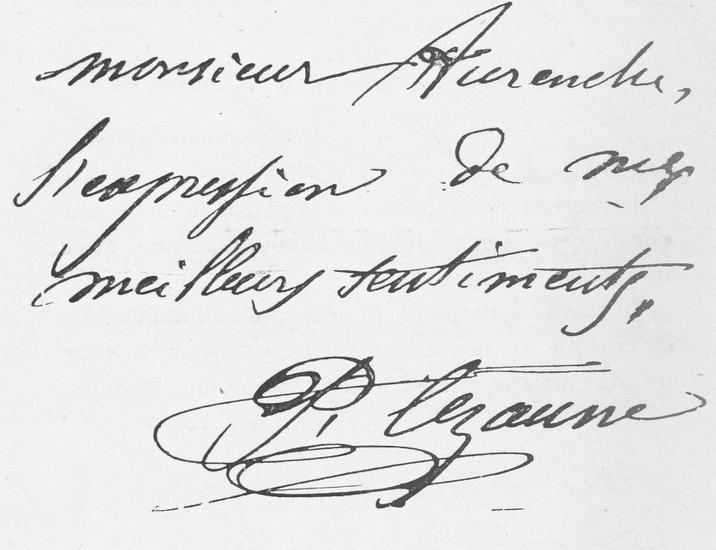 monsieur Aurenche,
l'expression de mes
meilleurs sentiments,
P. Cezanne